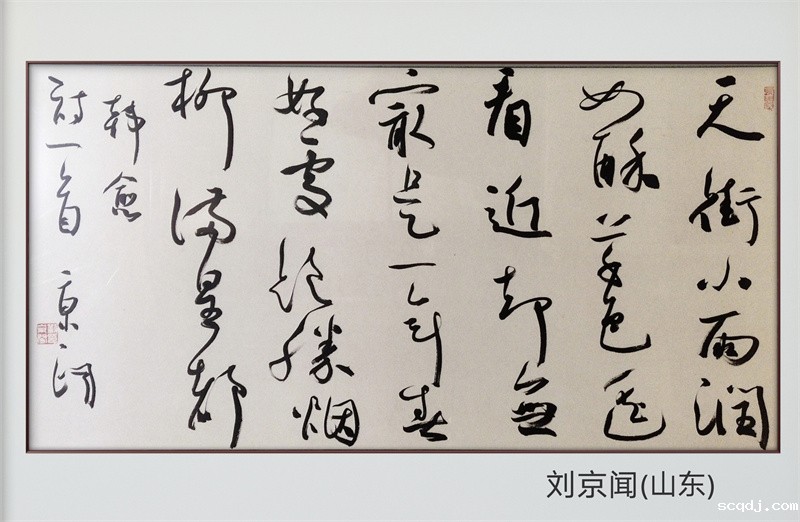 天街小雨润
如酥草色遥
看近却无
最是一年春
好处绝胜烟
柳满皇都
韩愈
诗一首 京闻
刘京闻(山东)
scqdj.com